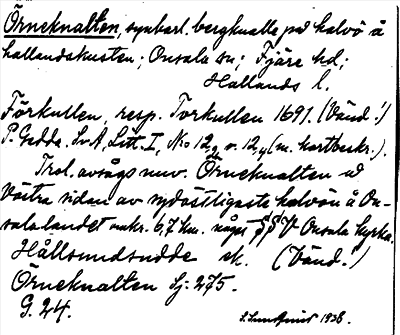 Örneknalten, synbarl. bergknalle på halvö å
hallandskusten; Onsala sn; Fjäre hd;
Hallands l.
Förkullen, resp. Torkullen 1691. (Vänd!)
P. Gedda. Sv. A, Litt. I, No 12,2 o. 12,4 (m. kartbeskr.).
Trol. avsågs nuv. Örneknalten å
västra sidan av sydöstligaste halvön å On-
salalandet omkr. 6,7 km. något SSV Onsala kyrka.
Hållsundsudde sk. (Vänd!)
Örneknalten Sj: 275.
G. 24.
S. Lundqvist 1938.